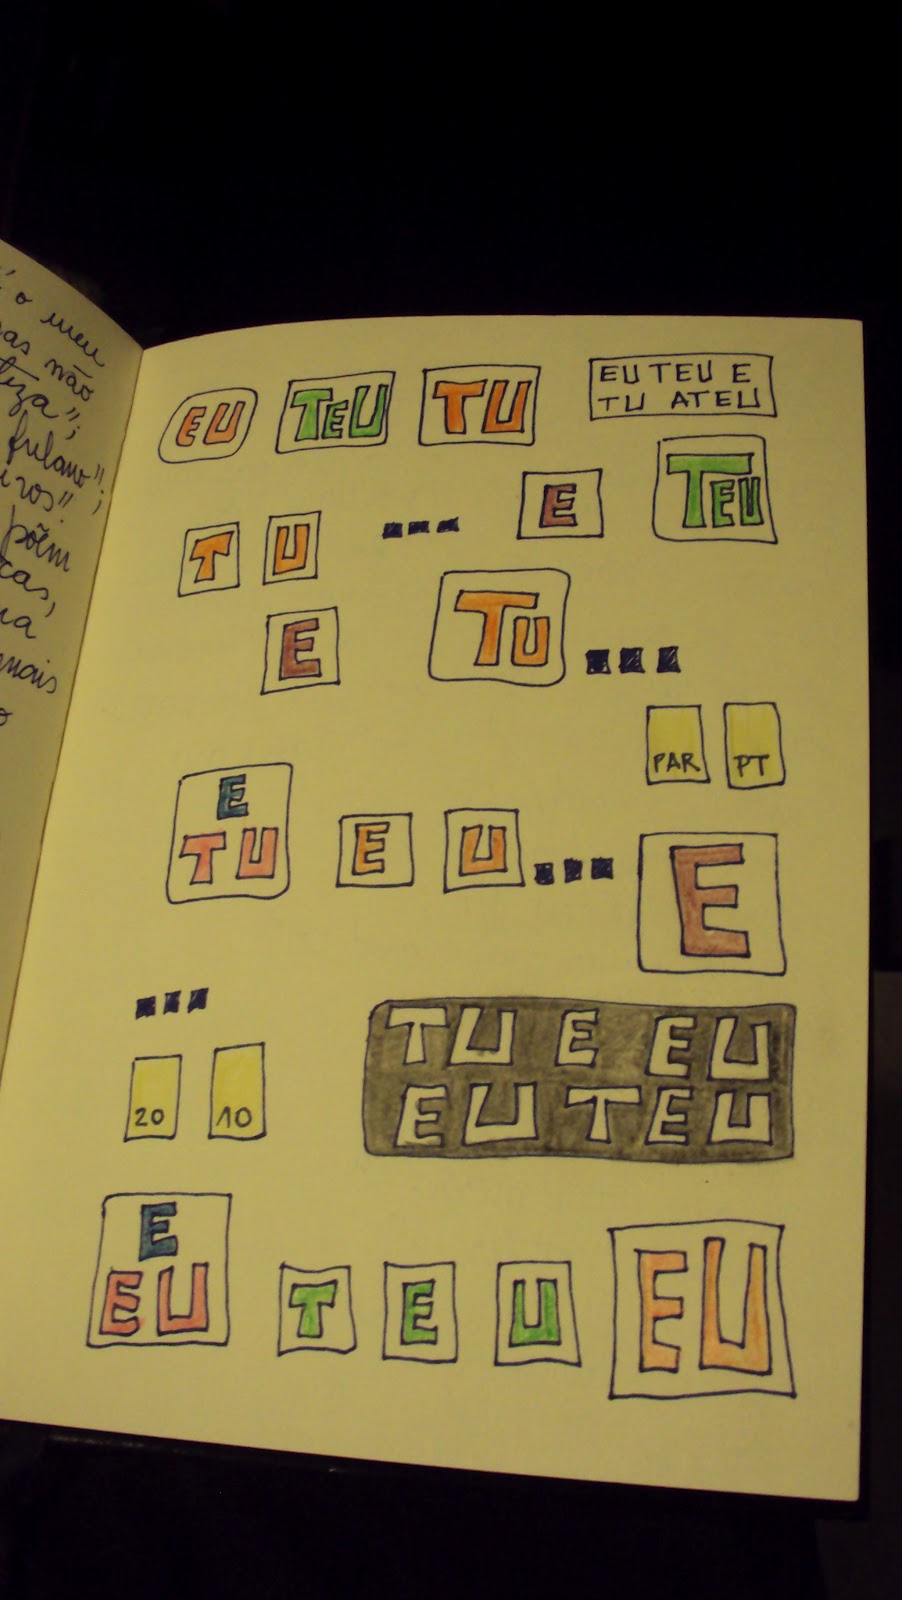 o meu
não
fulano";
põem
EU TEU TU
EU TEU E
TU ATEU
T U E TEU
E TU
PAR PT
E
TU
E U E
20 10
TU E EU
EU TEU
E
EU
T E U EU